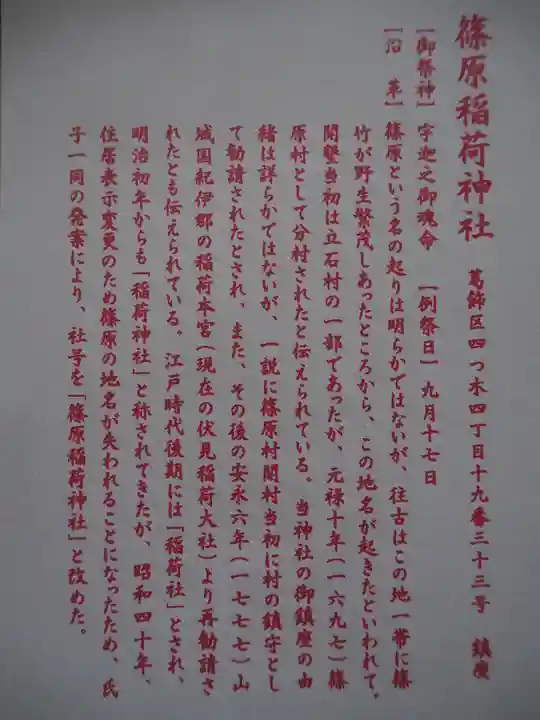 篠原稲荷神社　葛飾区四つ木四丁目十九番三十三号　鎮座
【御祭神】宇迦之御魂命　【例祭日】九月十七日
【沿　革】篠原という名の起りは明らかではないが、往古はこの地一帯に篠
竹が野生繁茂しあったところから、この地名が起きたといわれて。
開墾当初は立石村の一部であったが、元禄十年（一六九七）篠
原村として分村されたと伝えられている。当神社の御鎮座の由
緒は詳らかではないが、一説に篠原村開村当初に村の鎮守とし
て勧請されたとされ、また、その後の安永六年（一七七七）山
城国紀伊郡の稲荷本宮（現在の伏見稲荷大社）より再勧請さ
れたとも伝えられている。江戸時代後期には「稲荷社」とされ、
明治初年からも「稲荷神社」と称されてきたが、昭和四十年、
住居表示変更のため篠原の地名が失われることになったため、氏
子一同の発案により、社号を「篠原稲荷神社」と改めた。